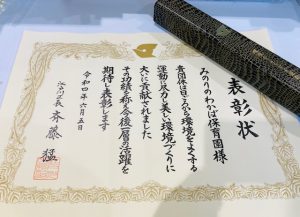 表彰状
みのりのわかば保育園様
貴団体は日ごろから環境をよくする
運動に尽力し美しい環境づくりに
大いに貢献されました
その功績を称え今後一層の活躍を
期待し表彰します
令和四年六月五日
江戸川区長 斉藤 猛